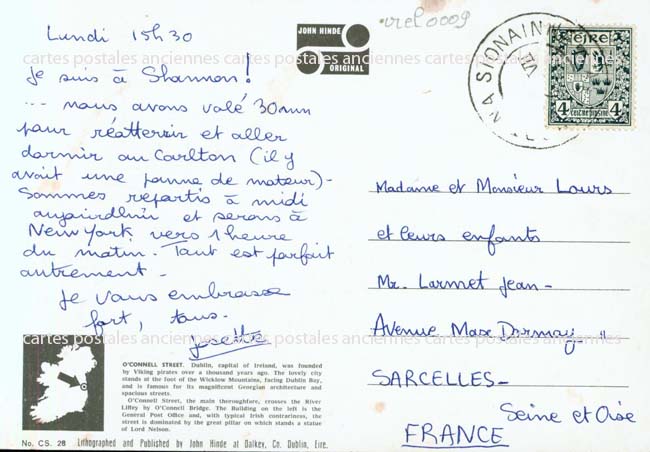 Lundi 15h30
Je suis à Shannon!
... nous avons volé 30mn
pour réatterrir et aller
dormir au Carlton (il y
avait une panne de moteur)-
Sommes repartis à midi
aujourd'hui et serons à
New York vers 1 heure
du matin. Tout est parfait
autrement -
Je vous embrasse
fort, tous.
Josette
JOHN HINDE
ORIGINAL
irel0009
SIONAINN
ÉIRE
4 4
Madame et Monsieur Lours
et leurs enfants
Mr. Larmet Jean-
Avenue Max Dormoy
SARCELLES-
Seine et Oise
FRANCE
cartes postales anciennes cartes postales anciennes cartes postales anciennes
cartes postales anciennes cartes postales anciennes cartes postales anciennes
O'CONNELL STREET. Dublin, capital of Ireland, was founded
by Viking pirates over a thousand years ago. The lovely city
stands at the foot of the Wicklow Mountains, facing Dublin Bay,
and is famous for its magnificent Georgian architecture and
spacious streets.
O'Connell Street, the main thoroughfare, crosses the River
Liffey by O'Connell Bridge. The Building on the left is the
General Post Office and, with typical Irish contrariness, the
street is dominated by the great pillar on which stands a statue
of Lord Nelson.
No. CS. 28 Lithographed and Published by John Hinde at Dalkey, Co. Dublin, Eire.